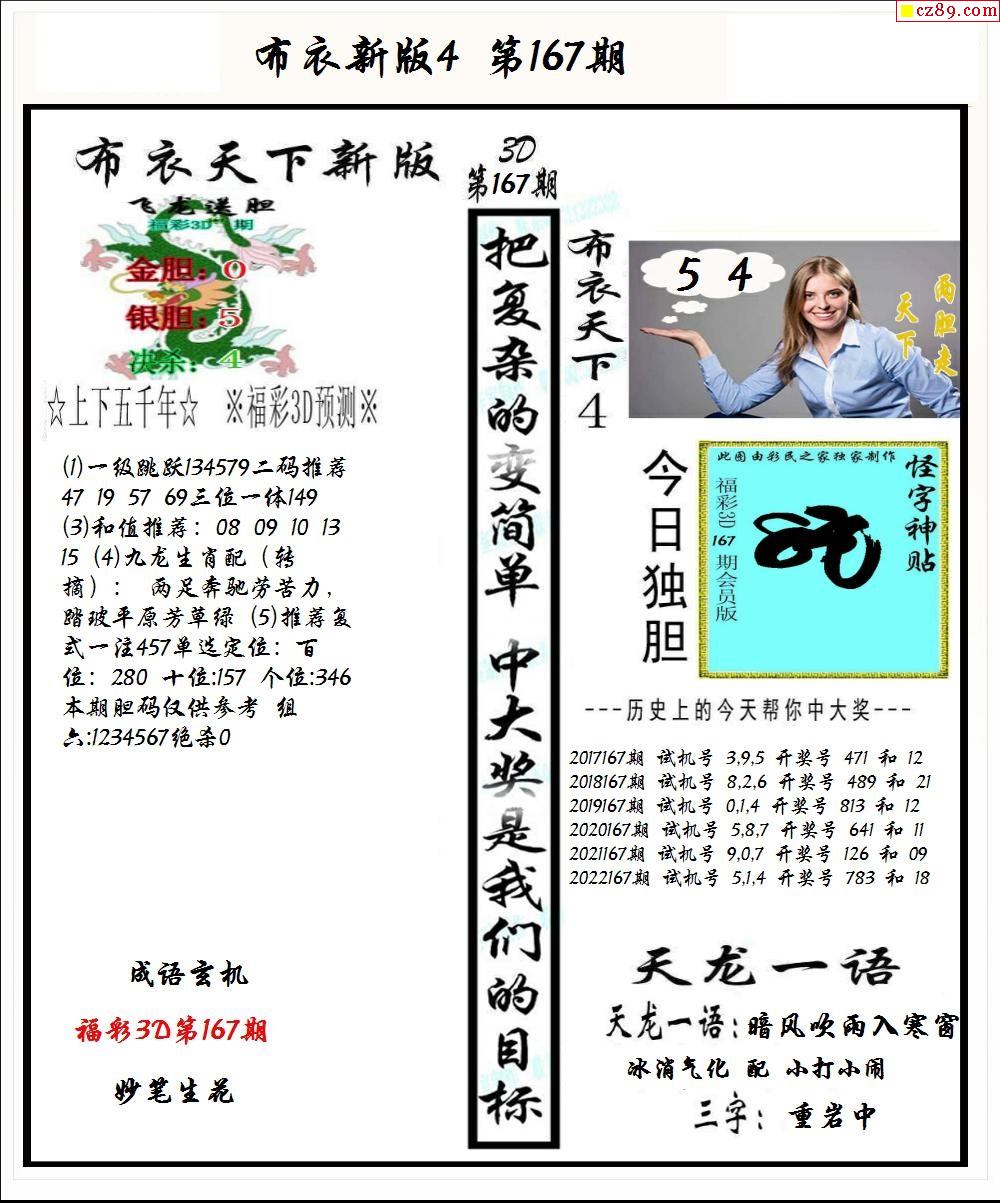 cz89.com
布衣新版4 第167期
布衣天下新版
3D
第167期
飞龙送胆
福彩3D 期
金胆：0
银胆：5
决杀：4
☆上下五千年☆ ※福彩3D预测※
(1)一级跳跃134579二码推荐
47 19 57 69三位一体149
(3)和值推荐：08 09 10 13
15 (4)九龙生肖配（转
摘）： 两足奔驰劳苦力，
踏玻平原芳草绿 (5)推荐复
式一注457单选定位：百
位：280 十位:157 个位:346
本期胆码仅供参考 组
六:1234567绝杀0
成语玄机
福彩3D第167期
妙笔生花
把复杂的变简单 中大奖是我们的目标
布衣天下4
5 4
两胆走
天下
今日独胆
此图由彩民之家独家制作
怪字神贴
福彩3D 167 期会员版
---历史上的今天帮你中大奖---
2017167期 试机号 3,9,5 开奖号 471 和 12
2018167期 试机号 8,2,6 开奖号 489 和 21
2019167期 试机号 0,1,4 开奖号 813 和 12
2020167期 试机号 5,8,7 开奖号 641 和 11
2021167期 试机号 9,0,7 开奖号 126 和 09
2022167期 试机号 5,1,4 开奖号 783 和 18
天龙一语
天龙一语：暗风吹雨入寒窗
冰消气化 配 小打小闹
三字：重岩中